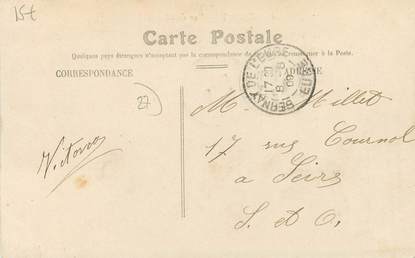 15t
Carte Postale
Quelques pays étrangers n'acceptant pas la correspondance de ce côté, se renseigner à la Poste.
CORRESPONDANCE
ADRESSE
BERNAY DE L'EURE
17 30
8 - 8
09
EURE
27
M. Millet
17 rue Cournol
à
S. et O.